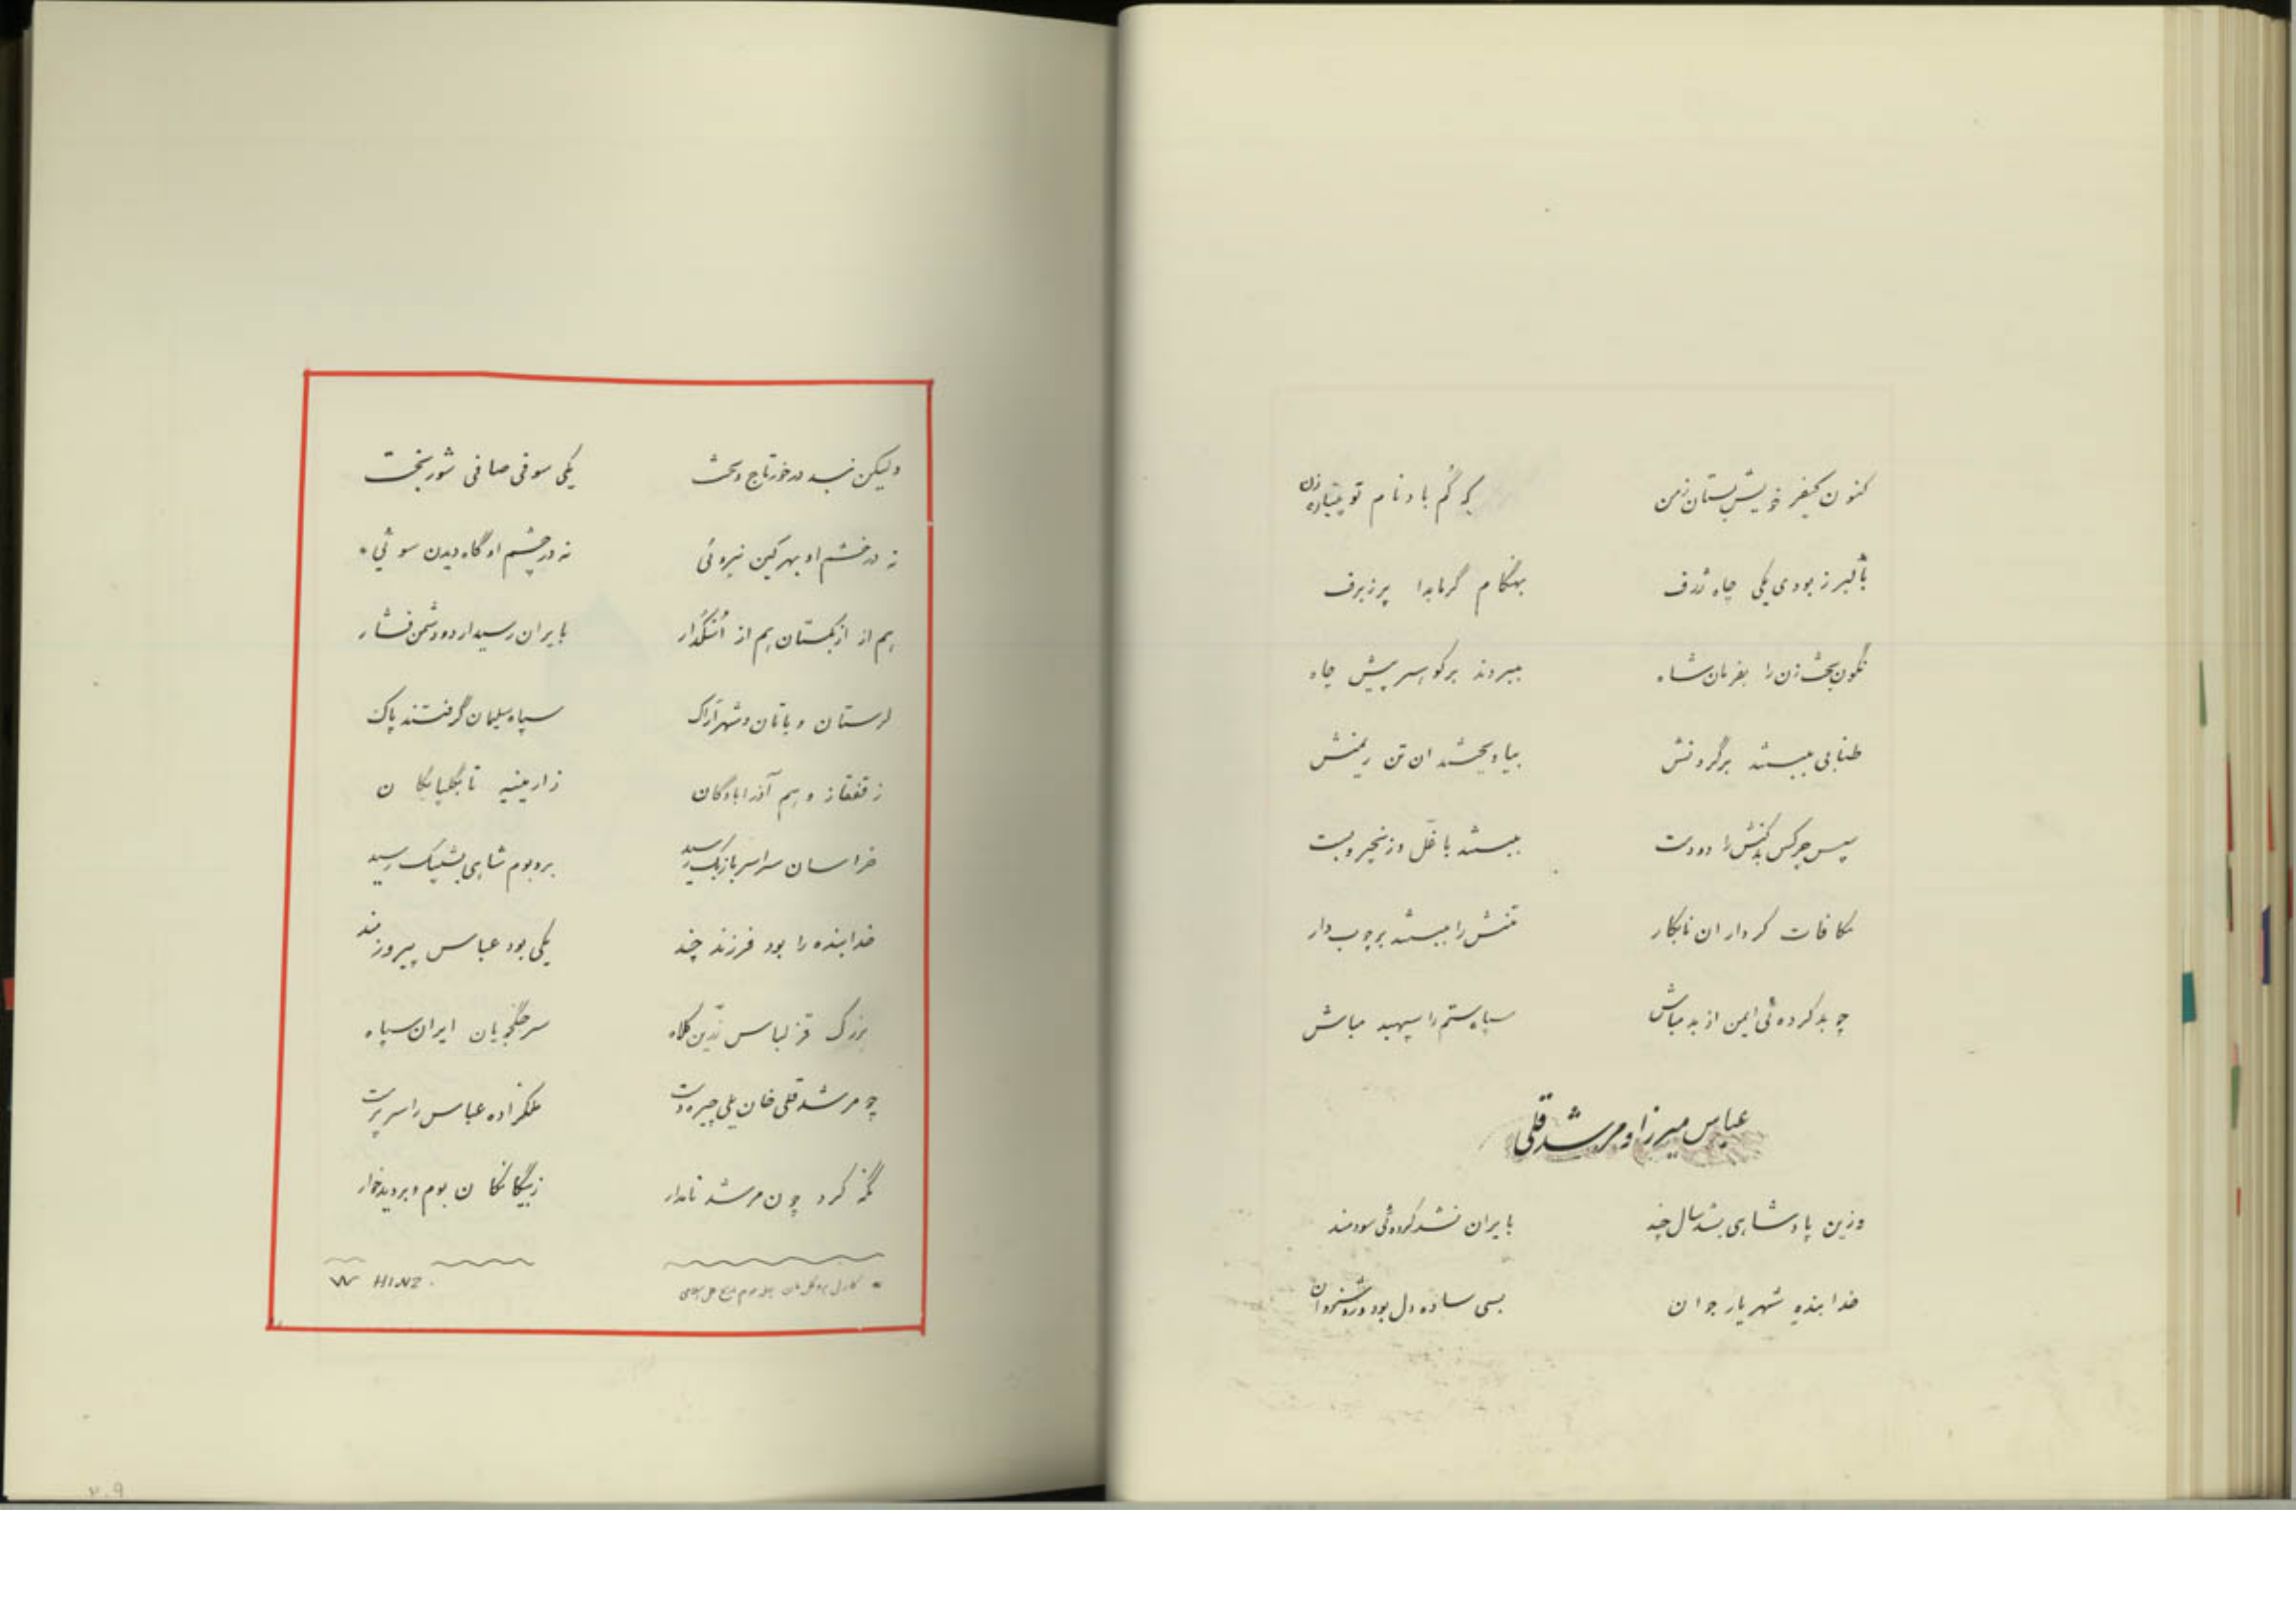 کنون کیفر خویش بستان زمن که گم باد نام تو پتیاره زن
بالبرز بودی یکی چاه ژرف بهنگام گرمابدا پر زبرف
نگون بخت زن را بفرمان شاه ببردند برکوهسر پیش چاه
طنابی ببستند برگردنش بیاویختند ان تن ریمنش
سپس چرکس بدکنش را دودست ببستند با غل وزنجیر وبست
مکافات کردار ان نابکار تنش را ببستند برچوب دار
چو بدکرده ئی ایمن از بد مباش سپاه ستم را سپهبد مباش
عباس میرزا و مرشد قلی
وزین پادشاهی بشد سال چند بایران نشد کرده ئی سودمند
خدابنده شهریار جوان بسی ساده دل بود و روشنروان
ولیکن نبد درخور تاج وتخت یکی سوفی صافی شوربخت
نه درخشم او بهر کین نیروئی نه درچشم او گاه دیدن سوئی *
هم از ازبکستان هم از اشکدار بایران رسید از دودشمن فشار
لرستان و باتان وشهر آراک سپاه سلیمان گرفتند پاک
ز قفقاز و هم آذرابادگان زارمینیه تا بگلپایگان
خراسان سراسر بازبک رسید بروبوم شاهی بشیبک رسید
خدابنده را بود فرزند چند یکی بود عباس پیروزمند
بزرگ قزلباس زرین کلاه سرجنگجویان ایران سپاه
چو مرشد قلی خان یلی چیره دست ملکزاده عباس را سرپرست
نگه کرد چون مرشد نامدار زبیگانگان بوم وبر دید خوار
* کارل بروکلمان W HINZ.
۲۰۹